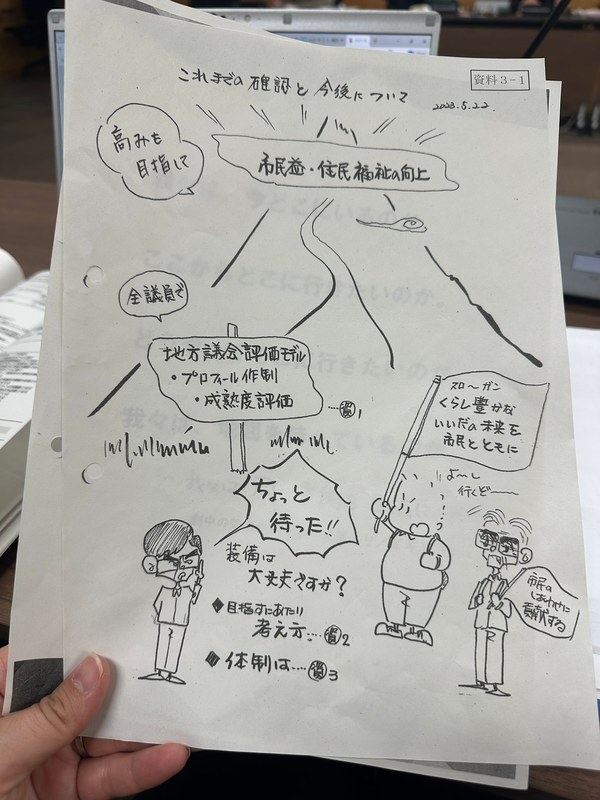 資料3-1
これまでの確認と今後について
2023.5.22.
高みを
目指して
市民益・住民福祉の向上
全議員で
地方議会評価モデル
・プロフィール作制
・成熟度評価
…資1
スローガン
くらし豊かな
いいだの未来を
市民とともに
よ〜し
行くぞ〜
ちょっと
待った!!
装備は
大丈夫ですか?
◆目指すにあたり
考え方…資2
◆体制は…資3
市民の
しあわせに
貢献する
ここからどこに行きたいのか。